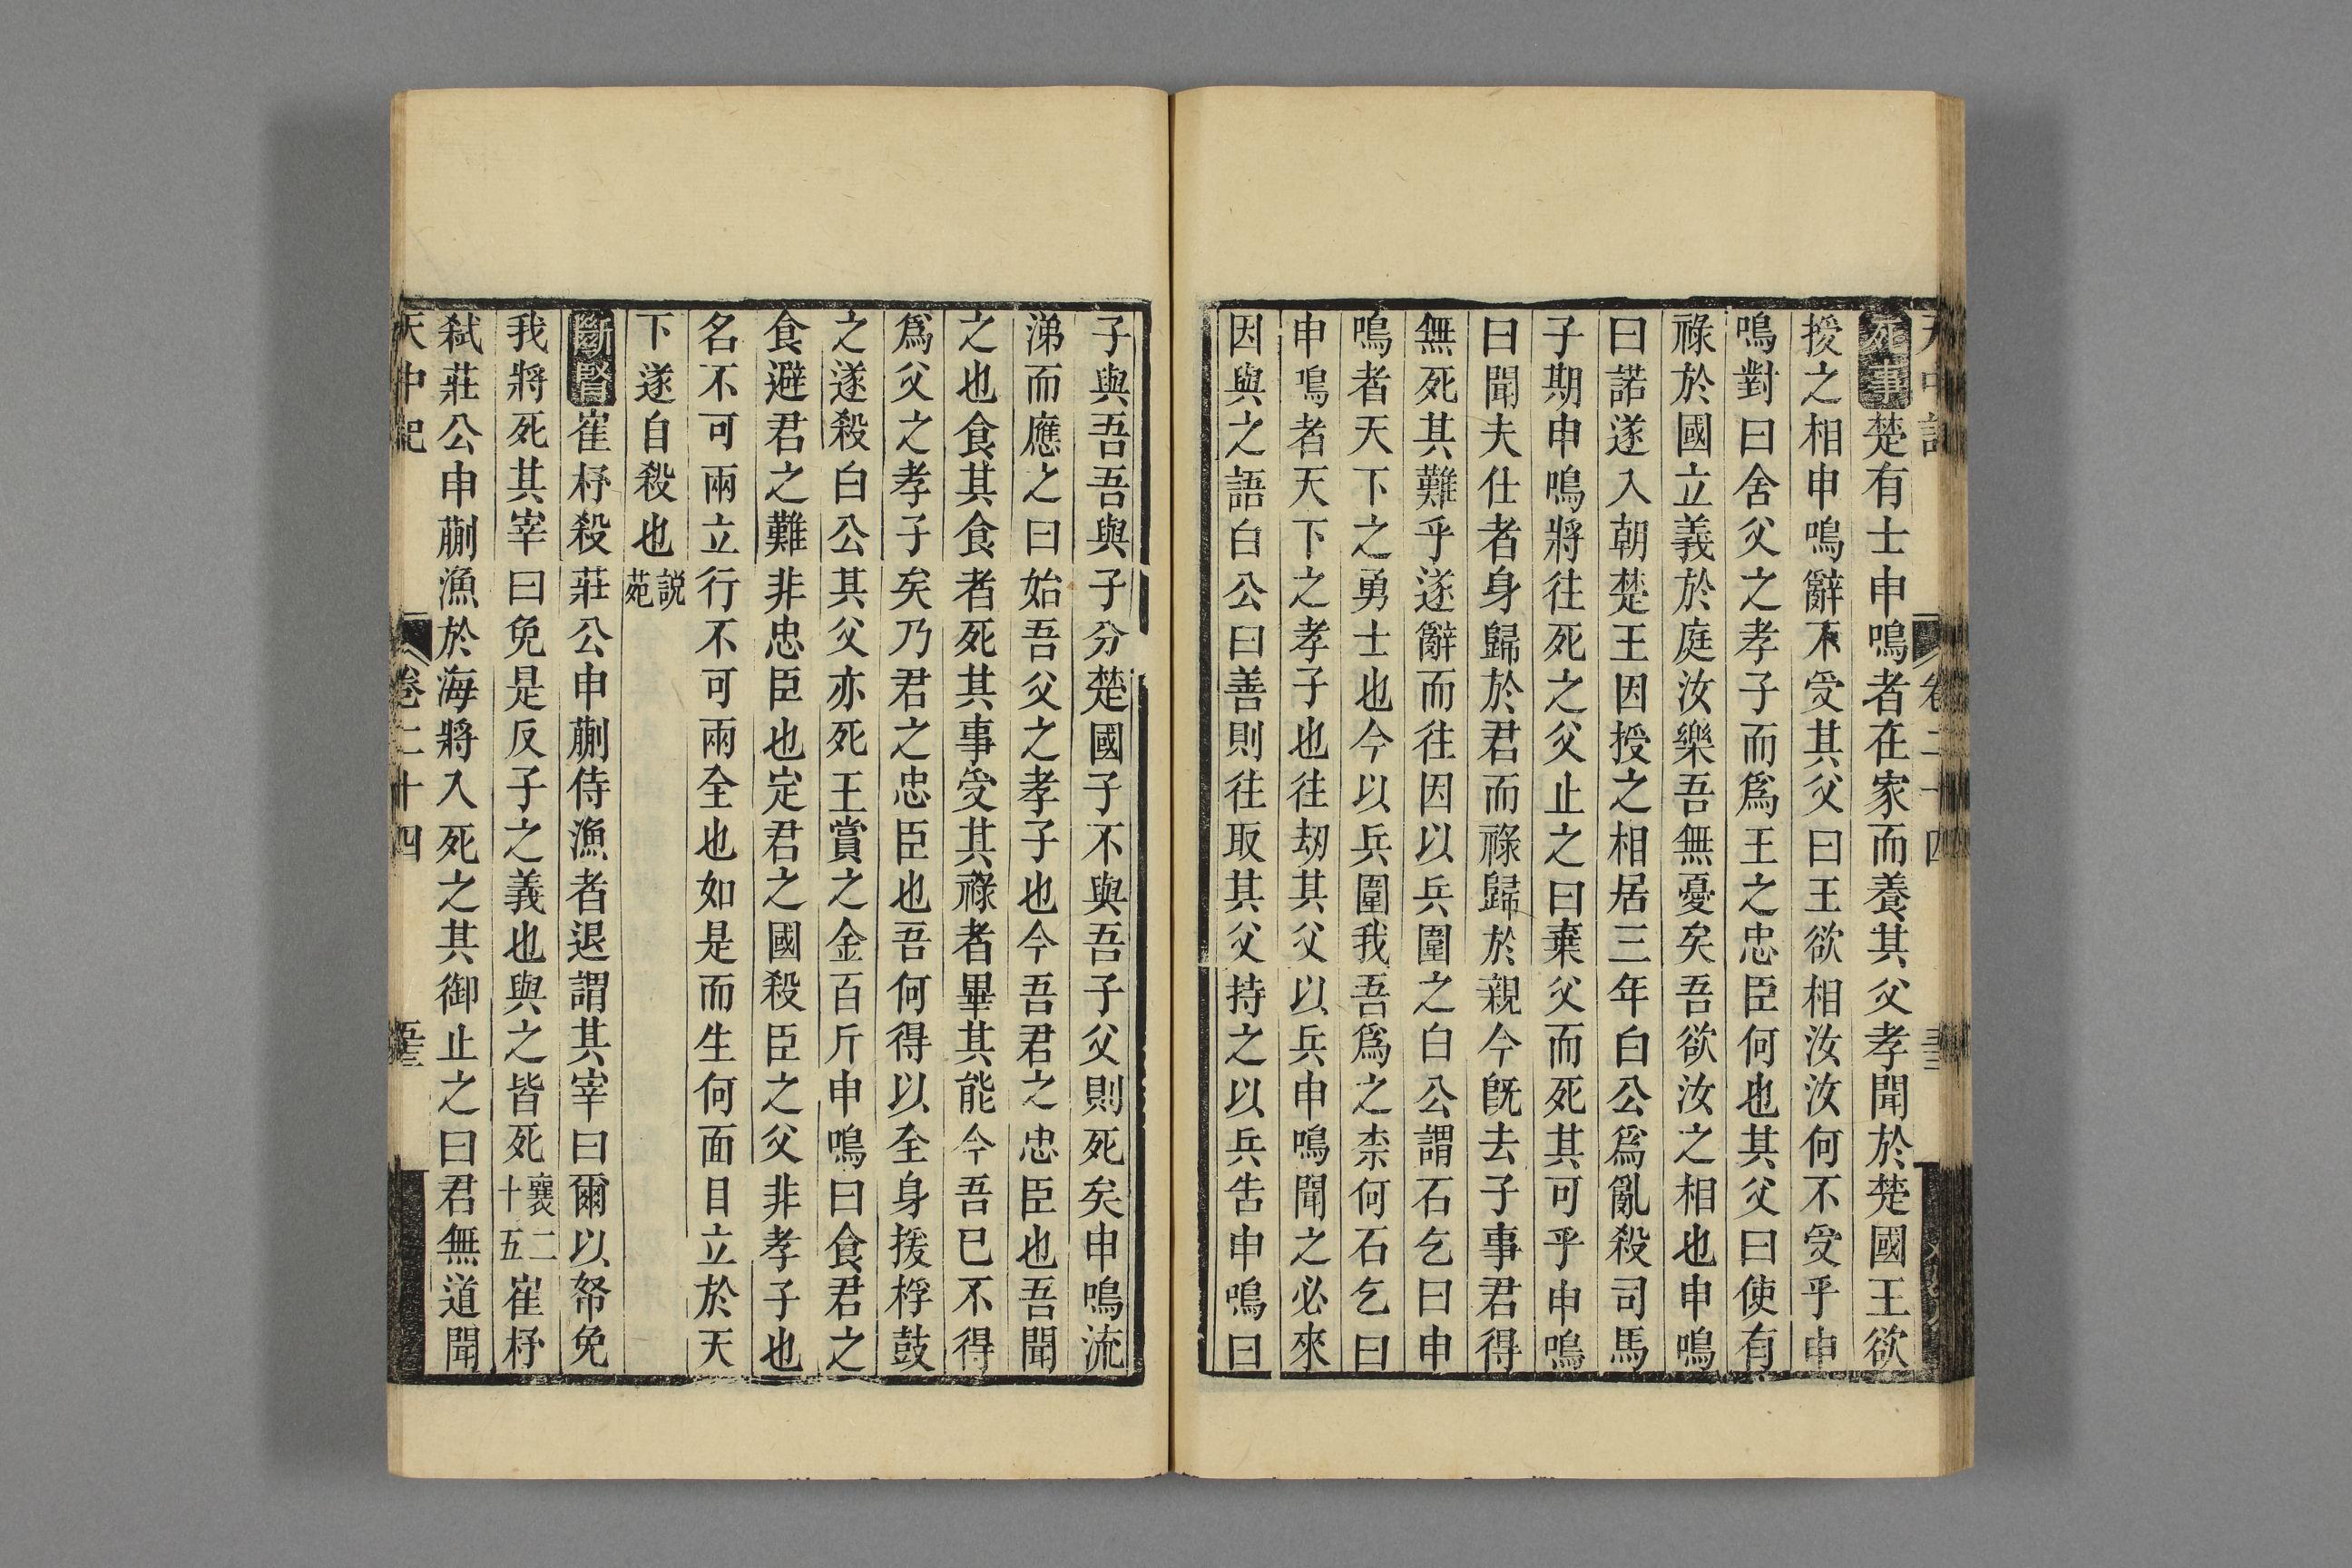 天中記 卷二十四
死事楚有士申鳴者在家而養其父孝聞於楚國王欲
授之相申鳴辭不受其父曰王欲相汝汝何不受乎申
鳴對曰舍父之孝子而爲王之忠臣何也其父曰使有
祿於國立義於庭汝樂吾無憂矣吾欲汝之相也申鳴
曰諾遂入朝楚王因授之相居三年白公爲亂殺司馬
子期申鳴將往死之父止之曰棄父而死其可乎申鳴
曰聞夫仕者身歸於君而祿歸於親今旣去子事君得
無死其難乎遂辭而往因以兵圍之白公謂石乞曰申
鳴者天下之勇士也今以兵圍我吾爲之柰何石乞曰
申鳴者天下之孝子也往刼其父以兵申鳴聞之必來
因與之語白公曰善則往取其父持之以兵告申鳴曰
子與吾吾與子分楚國子不與吾子父則死矣申鳴流
涕而應之曰始吾父之孝子也今吾君之忠臣也吾聞
之也食其食者死其事受其祿者畢其能今吾已不得
爲父之孝子矣乃君之忠臣也吾何得以全身援桴鼓
之遂殺白公其父亦死王賞之金百斤申鳴曰食君之
食避君之難非忠臣也定君之國殺臣之父非孝子也
名不可兩立行不可兩全也如是而生何面目立於天
下遂自殺也說苑
斷臂崔杼殺莊公申蒯侍漁者退謂其宰曰爾以帑免
我將死其宰曰免是反子之義也與之皆死襄二十五崔杼
弒莊公申蒯漁於海將入死之其御止之曰君無道聞
天中記 卷二十四